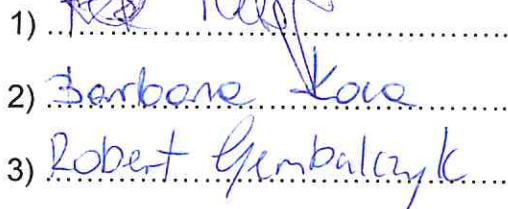 1)
2) Barbara Koca
3) Robert Gembalczyk